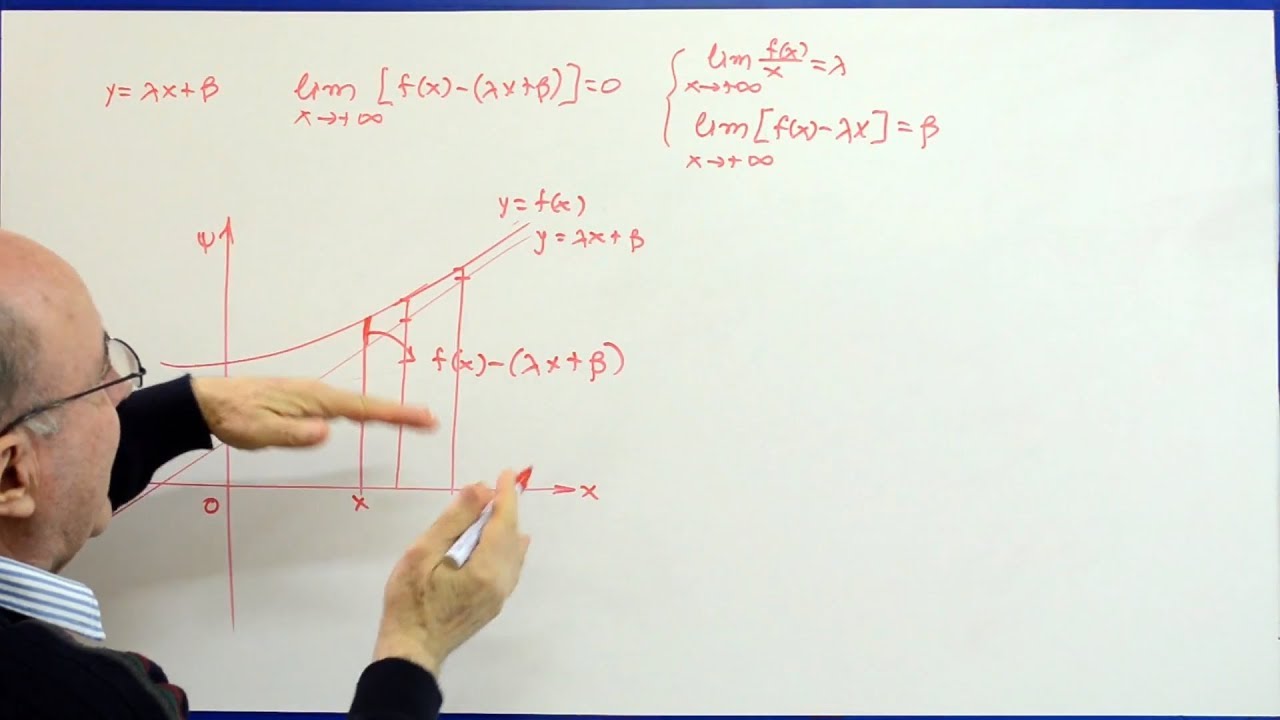 y = λx + β
lim [f(x) - (λx + β)] = 0
x → +∞
lim f(x)/x = λ
x → +∞
lim [f(x) - λx] = β
x → +∞
y = f(x)
y = λx + β
ψ
f(x) - (λx + β)
0
x
x